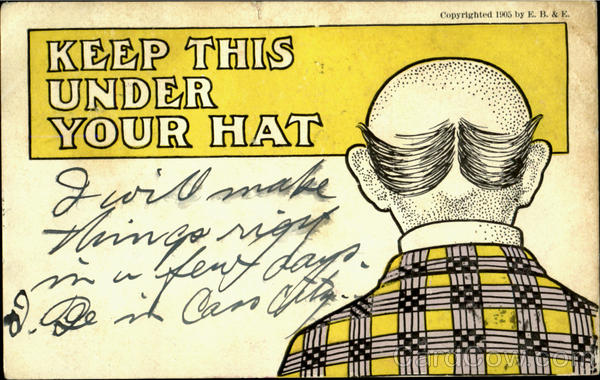 Copyrighted 1905 by E. B. & E.
KEEP THIS
UNDER
YOUR HAT
I will make
things right
in a few days.
Be in Cass City.
CardCow.com